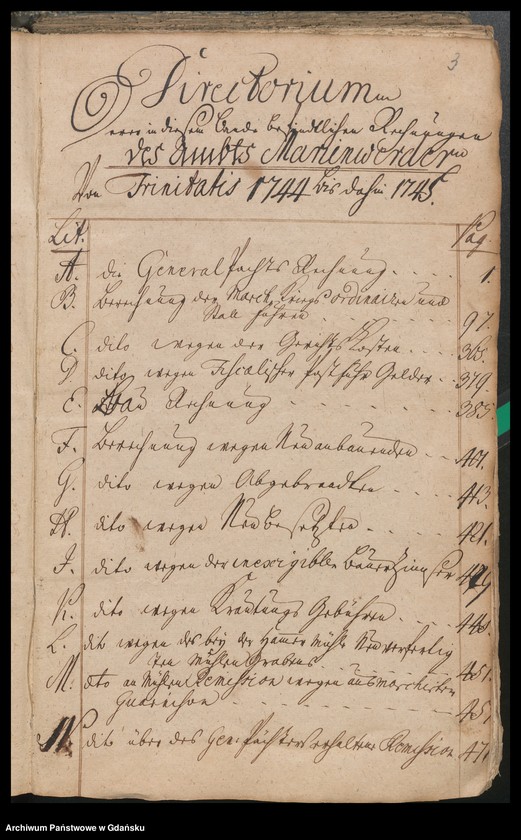 3
Directorium
derer in diesem Bande befindtlichen Rechnungen
des Ambts Marienwerder
Von Trinitatis 1744 bis dahin 1745.
Lit. Pag.
A. die General Pachts Rechnung. 1.
B. Berechnung der Marck, Kriegs ordinairen und
Fuhren 97.
C. dito wegen der Gerichts Kosten 365.
D dito wegen Fiscalischer Gelder 379.
E. Bau Rechnung 385.
F. Berechnung wegen Neuanbauenden 401.
G. dito wegen Abgebrandten 413.
H. dito wegen Neubesetzten 421.
J. dito wegen der inexigiblen Bauer Zinnser 429
K. dito wegen Kräutungs Gebühren 448.
L. dito wegen des bey der Hammer Mühle Neu verfertig
ten Mühlen Grabens 451.
M. dito an Mühlen Remission wegen ausmarchirter
Guarnison 457
N dito über des Gen: Pächters erhaltene Remission 471
Archiwum Państwowe w Gdańsku